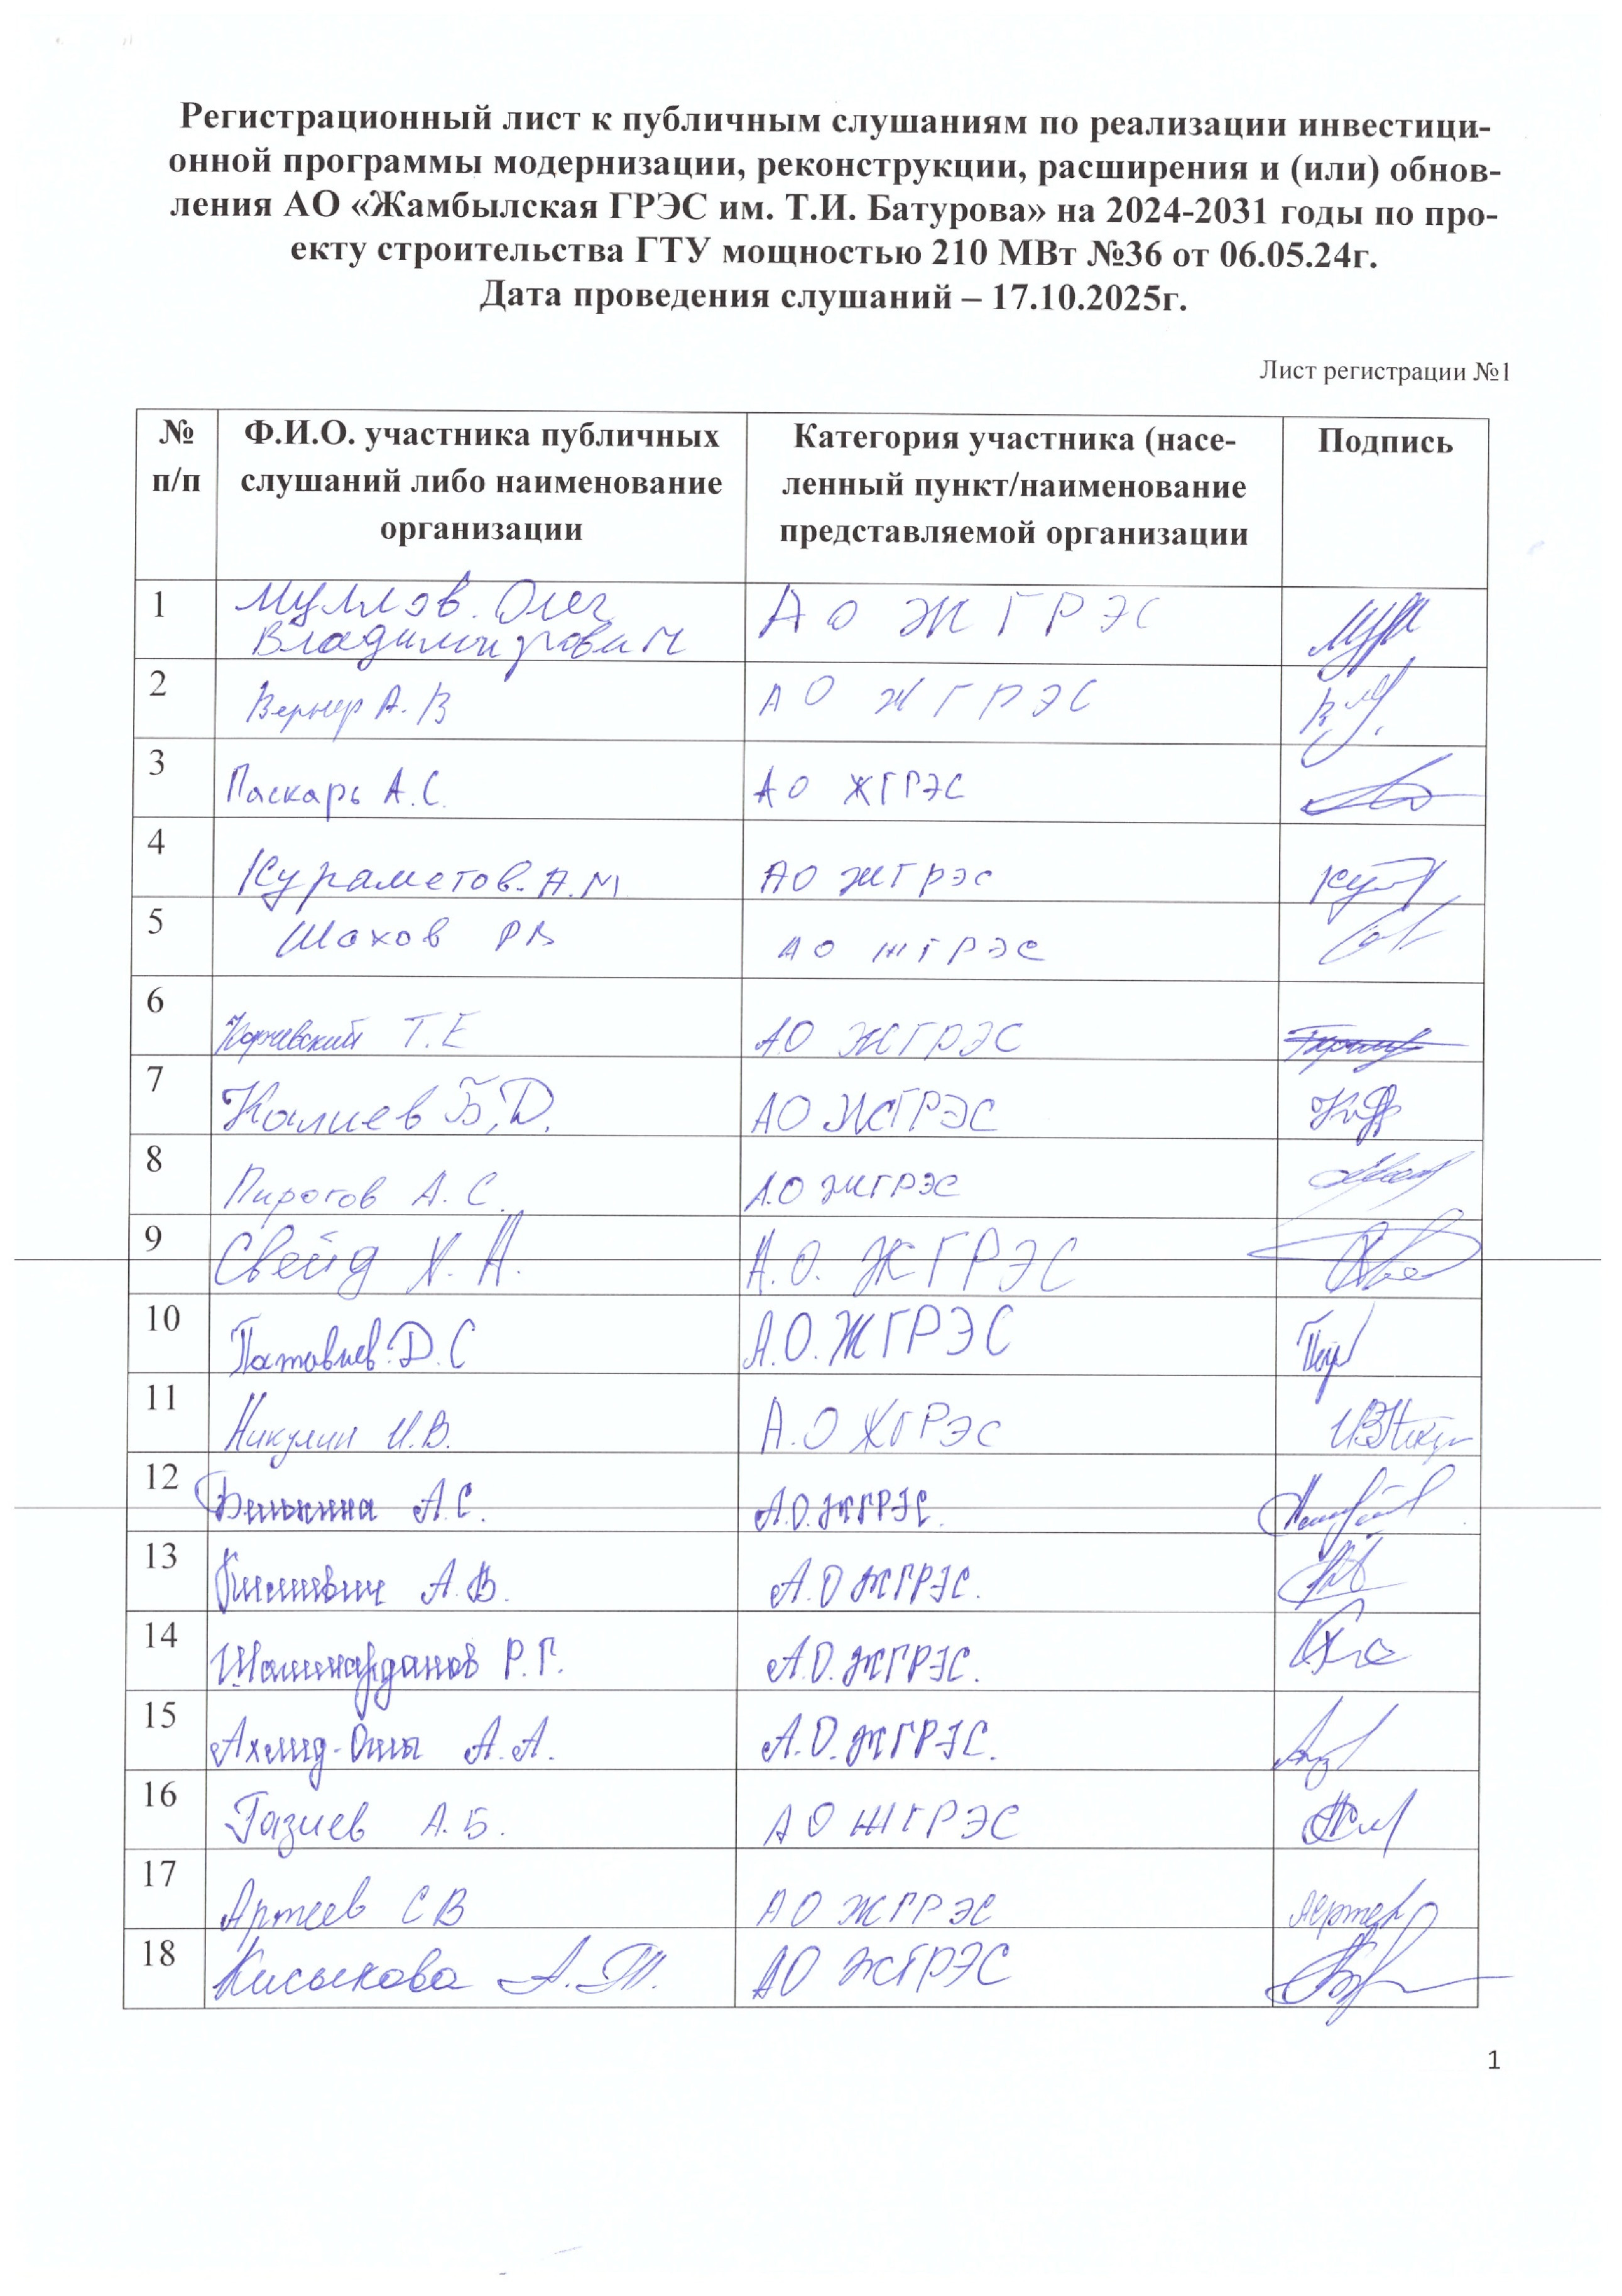 Регистрационный лист к публичным слушаниям по реализации инвестици-
онной программы модернизации, реконструкции, расширения и (или) обнов-
ления АО «Жамбылская ГРЭС им. Т.И. Батурова» на 2024-2031 годы по про-
екту строительства ГТУ мощностью 210 МВт №36 от 06.05.24г.
Дата проведения слушаний – 17.10.2025г.
Лист регистрации №1
№ п/п Ф.И.О. участника публичных слушаний либо наименование организации Категория участника (насе-ленный пункт/наименование представляемой организации Подпись
1 Муллов Олег Владимирович АО ЖГРЭС
2 Вернер А.В АО ЖГРЭС
3 Паскарь А.С. АО ЖГРЭС
4 Кураметов. А.М АО ЖГРЭС
5 Шахов РВ АО ЖГРЭС
6 Т.Е АО ЖГРЭС
7 Калиев Б.Д. АО ЖГРЭС
8 Пирогов А.С. А.О ЖГРЭС
9 Свейд Х.А. А.О. ЖГРЭС
10 Д.С А.О. ЖГРЭС
11 Никулин И.В. А.О ЖГРЭС
12 А.С. А.О. ЖГРЭС.
13 А.В. А.О ЖГРЭС.
14 Шаймарданов Р.Г. А.О. ЖГРЭС.
15 А.А. А.О. ЖГРЭС.
16 Газиев А.Б. АО ЖГРЭС
17 Артеев СВ АО ЖГРЭС
18 Кисыкова А.Т. АО ЖГРЭС
1